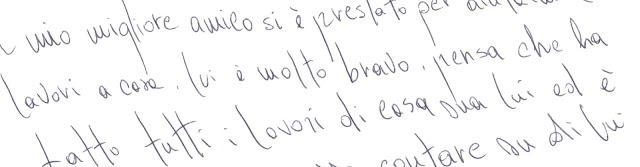 mio migliore amico si è prestato per
lavori a casa. lui è molto bravo, pensa che ha
fatto tutti i lavori di casa sua lui ed è
contare su di lui